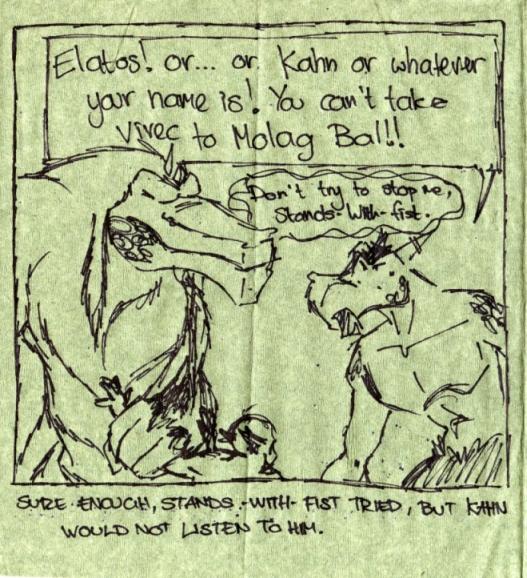 Elatos! or... or Kahn or whatever
your name is! You can't take
Vivec to Molag Bal!!
Don't try to stop me,
Stands-With-fist.
SURE ENOUGH, STANDS-WITH-FIST TRIED, BUT KAHN
WOULD NOT LISTEN TO HIM.